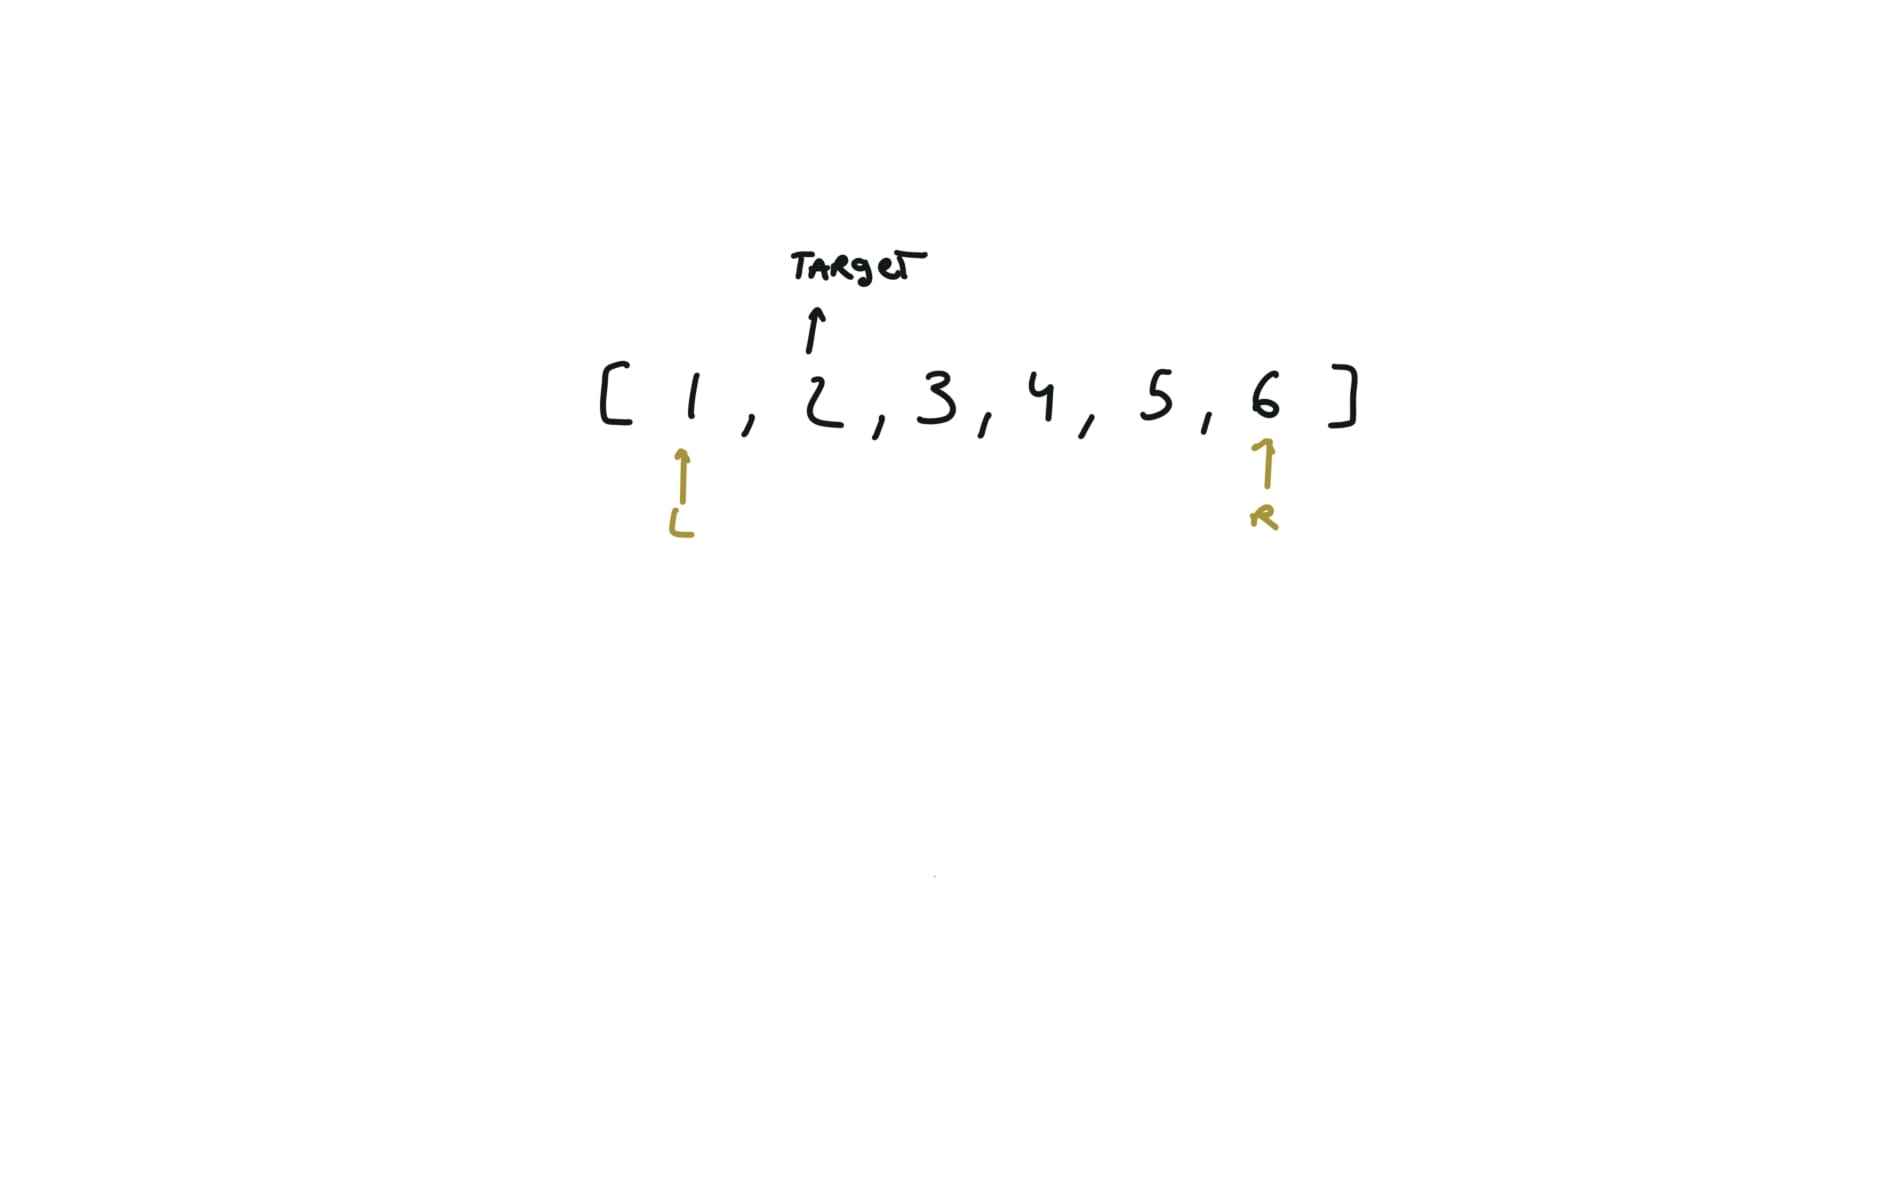 TARgeT
[ 1 , 2 , 3 , 4 , 5 , 6 ]
L R